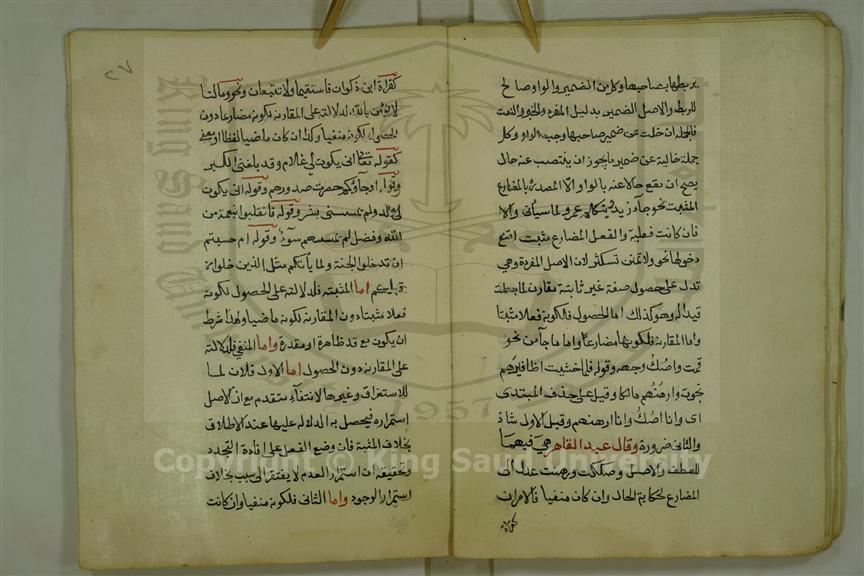 يربطها بصاحبها وكل من الضمير والواو صالح
للربط والاصل الضمير بدليل المفردة والخبر والنعت
فالجملة ان خلت عن ضمير صاحبها وجب الواو وكل
جملة خالية عن ضمير ما يجوز ان ينتصب عنه حال
يصح ان تقع حالا عنه بالواو الا المصدرة بالمضارع
المثبت نحو جاء زيد ويتكلم عمرو لما سيأتي والا
فان كانت فعلية والفعل المضارع مثبت امتنع
دخولها نحو ولا تمنن تستكثر لان الاصل المفردة وهي
تدل على حصول صفة غير ثابتة مقارن لما جعلت
قيدا له وهو كذلك اما الحصول فلكونه فعلا مثبتا
واما المقارنة فلكونها مضارعا واما ما جآ من نحو
قمت واصك وجهه وقوله فلما خشيت اظافيرهم
نجوت وارهنهم مالكا وقيل على حذف المبتدى
اى وانا اصك وانا ارهنهم وقيل الاول شاذ
والثانى ضرورة وقال عبد القاهر هي فيهما
للعطف والاصل وصككت ورهنت عدل الى
المضارع لحكاية الحال وان كان منفيا فالامران
كقراة
٢٧
كقراة ابن ذكوان فاستقيما ولا تتبعان ونحو وما لنا
لا نؤمن بالله لدلالته على المقارنة لكونه مضارعا دون
الحصول لكونه منفيا وكذا ان كان ماضيا لفظا او معنى
كقوله تعالى انى يكون لى غلام وقد بلغنى الكبر
وقوله او جآؤكم حصرت صدورهم وقوله انى يكون
لى ولد ولم يمسسنى بشر وقوله فانقلبوا بنعمة من
الله وفضل لم يمسسهم سوء وقوله ام حسبتم
ان تدخلوا الجنة ولما يأتكم مثل الذين خلوا من
قبلكم اما المثبتة فلدلالته على الحصول لكونه
فعلا مثبتا دون المقارنة لكونه ماضيا ولهذا شرط
ان يكون مع قد ظاهرة او مقدرة واما المنفي فلدلالته
على المقارنة دون الحصول اما الاول فلان لما
للاستغراق وغيرها لانتفآء متقدم مع ان الاصل
استمراره فيحصل به الدلالة عليها عند الاطلاق
بخلاف المثبة فان وضع الفعل على افادة التجدد
وتحقيقه ان استمرار العدم لا يفتقر الى سبب بخلاف
استمرار الوجود واما الثانى فلكونه منفيا وان كانت
King Saud University
1957
Copyright © King Saud University